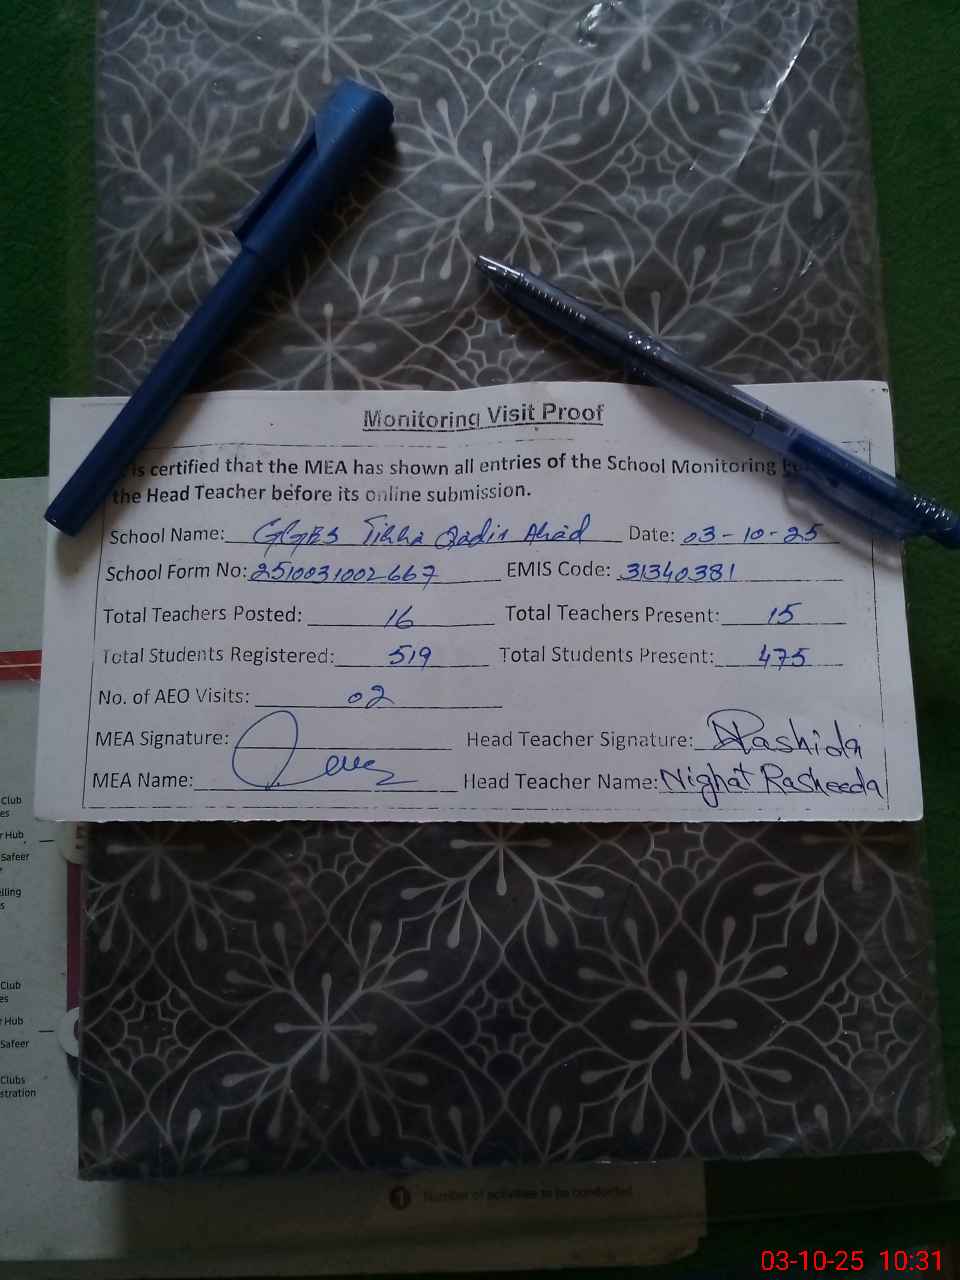 Monitoring Visit Proof
is certified that the MEA has shown all entries of the School Monitoring
the Head Teacher before its online submission.
School Name: GGPS Tibba Qadir Abad Date: 03-10-25
School Form No: 2510031002667 EMIS Code: 31340381
Total Teachers Posted: 16 Total Teachers Present: 15
Total Students Registered: 519 Total Students Present: 475
No. of AEO Visits: 02
MEA Signature: Head Teacher Signature: Rashida
MEA Name: Head Teacher Name: Nighat Rasheeda
Club
es
Hub
Safeer
s
Club
es
Hub
Safeer
Clubs
stration
1 Number of activities to be conducted
03-10-25 10:31